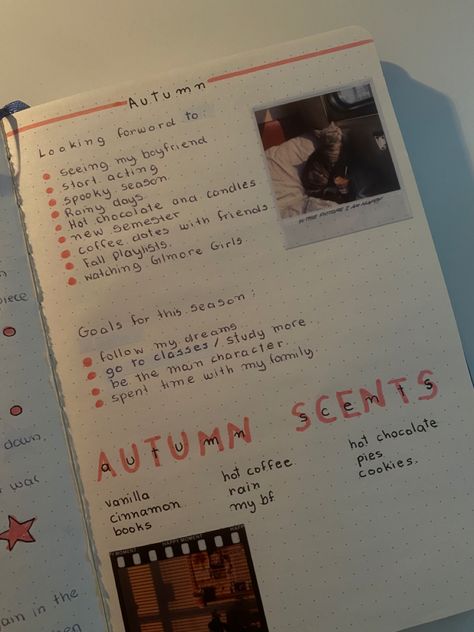 Autumn
Looking forward to:
seeing my boyfriend
start acting
spooky season
Rainy days
Hot chocolate and candles
new semester
coffee dates with friends
Fall playlists.
watching Gilmore Girls
IN THE FUTURE I AM HAPPY
Goals for this season:
follow my dreams
go to classes/study more
be the main character.
spent time with my family.
AUTUMN SCENTS
autumn scents
vanilla
cinnamon
books
hot coffee
rain
my bf
hot chocolate
pies
cookies.
MOMENT HAPPY MOMENT HAPP
piece
down.
war
in the